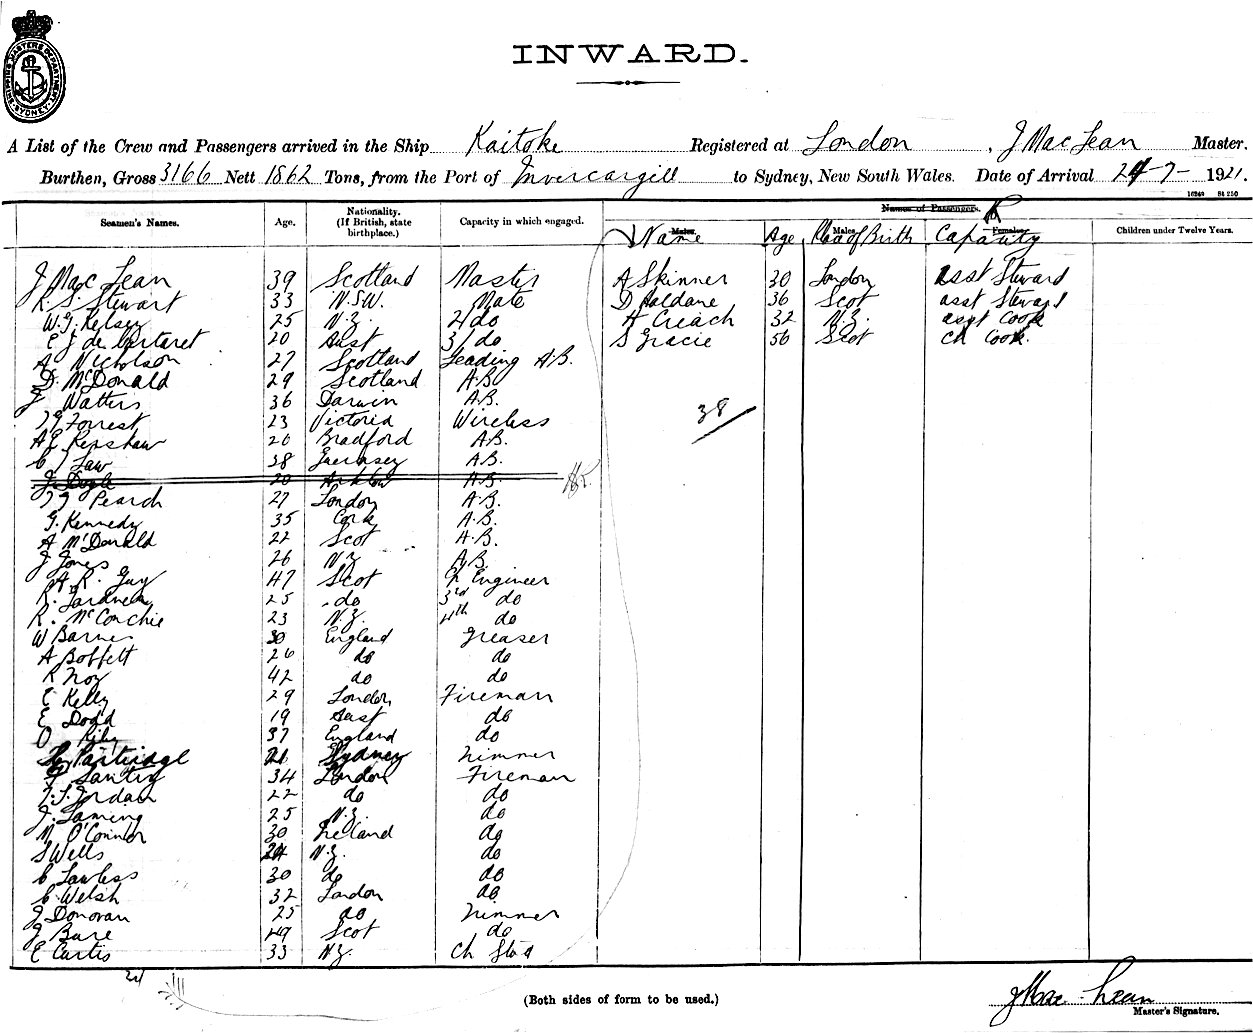 SHIPPING MASTERS DEPARTMENT SYDNEY
INWARD.
A List of the Crew and Passengers arrived in the Ship Kaitoke Registered at London , J MacLean Master.
Burthen, Gross 3166 Nett 1862 Tons, from the Port of Invercargill to Sydney, New South Wales. Date of Arrival 24-7- 1921.
Seamen's Names. Age. Nationality. (If British, state birthplace.) Capacity in which engaged. Names of Passengers.
Males. Males. Females. Children under Twelve Years.
Name Age Place of Birth Capacity
J MacLean 39 Scotland Master A Skinner 30 London asst Steward
R. S. Stewart 33 N.S.W. Mate D Haldane 36 Scot asst Steward
W. J. Kelsey 25 N.Z. 2/do A Creach 32 N.Z. asst Cook
C J de Carteret 20 Aust 3/do S Gracie 56 Scot Ch Cook.
A Nicholson 27 Scotland Leading A.B.
D. McDonald 29 Scotland A.B.
J Watters 36 Darwin A.B.
Forrest 23 Victoria Wireless
38
A E Renshaw 20 Bradford A.B.
C J Law 38 Guernsey A.B.
J. Doyle 20 Arklow A.B.
Pearch 27 London A.B.
G. Kennedy 35 Cork A.B.
A McDonald 22 Scot A.B.
J Jones 26 N.Z. A.B.
A. R. Guy 47 Scot Engineer
R. Gardner 25 do 3rd do
R. McConchie 23 N.Z. 4th do
W Barnes 30 England Greaser
A Boffett 26 do do
R Noy 42 do do
E Kelly 29 London Fireman
E Dodd 19 Aust do
O Riley 37 England do
Partridge 21 Sydney Trimmer
F Santry 34 London Fireman
T. S. Jordan 22 do do
J. Laming 25 N.Z. do
M O'Connor 30 Ireland do
S Wells 24 N.Z. do
C Lawless 30 do do
C Welsh 32 London do
J Donovan 25 do Trimmer
J Bure 49 Scot do
E Curtis 33 N.Z. Ch Std
(Both sides of form to be used.)
J MacLean
Master's Signature.